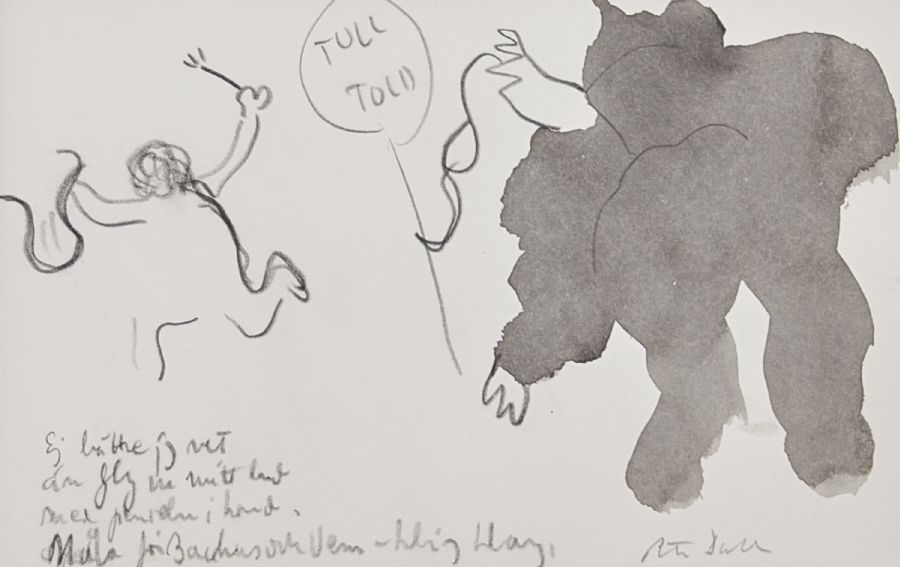 TULL
TOLD
Ej bättre jg vet
än fly ur mitt land
med penseln i hand.
Måla för Bacchus och Venus
Peter Dahl